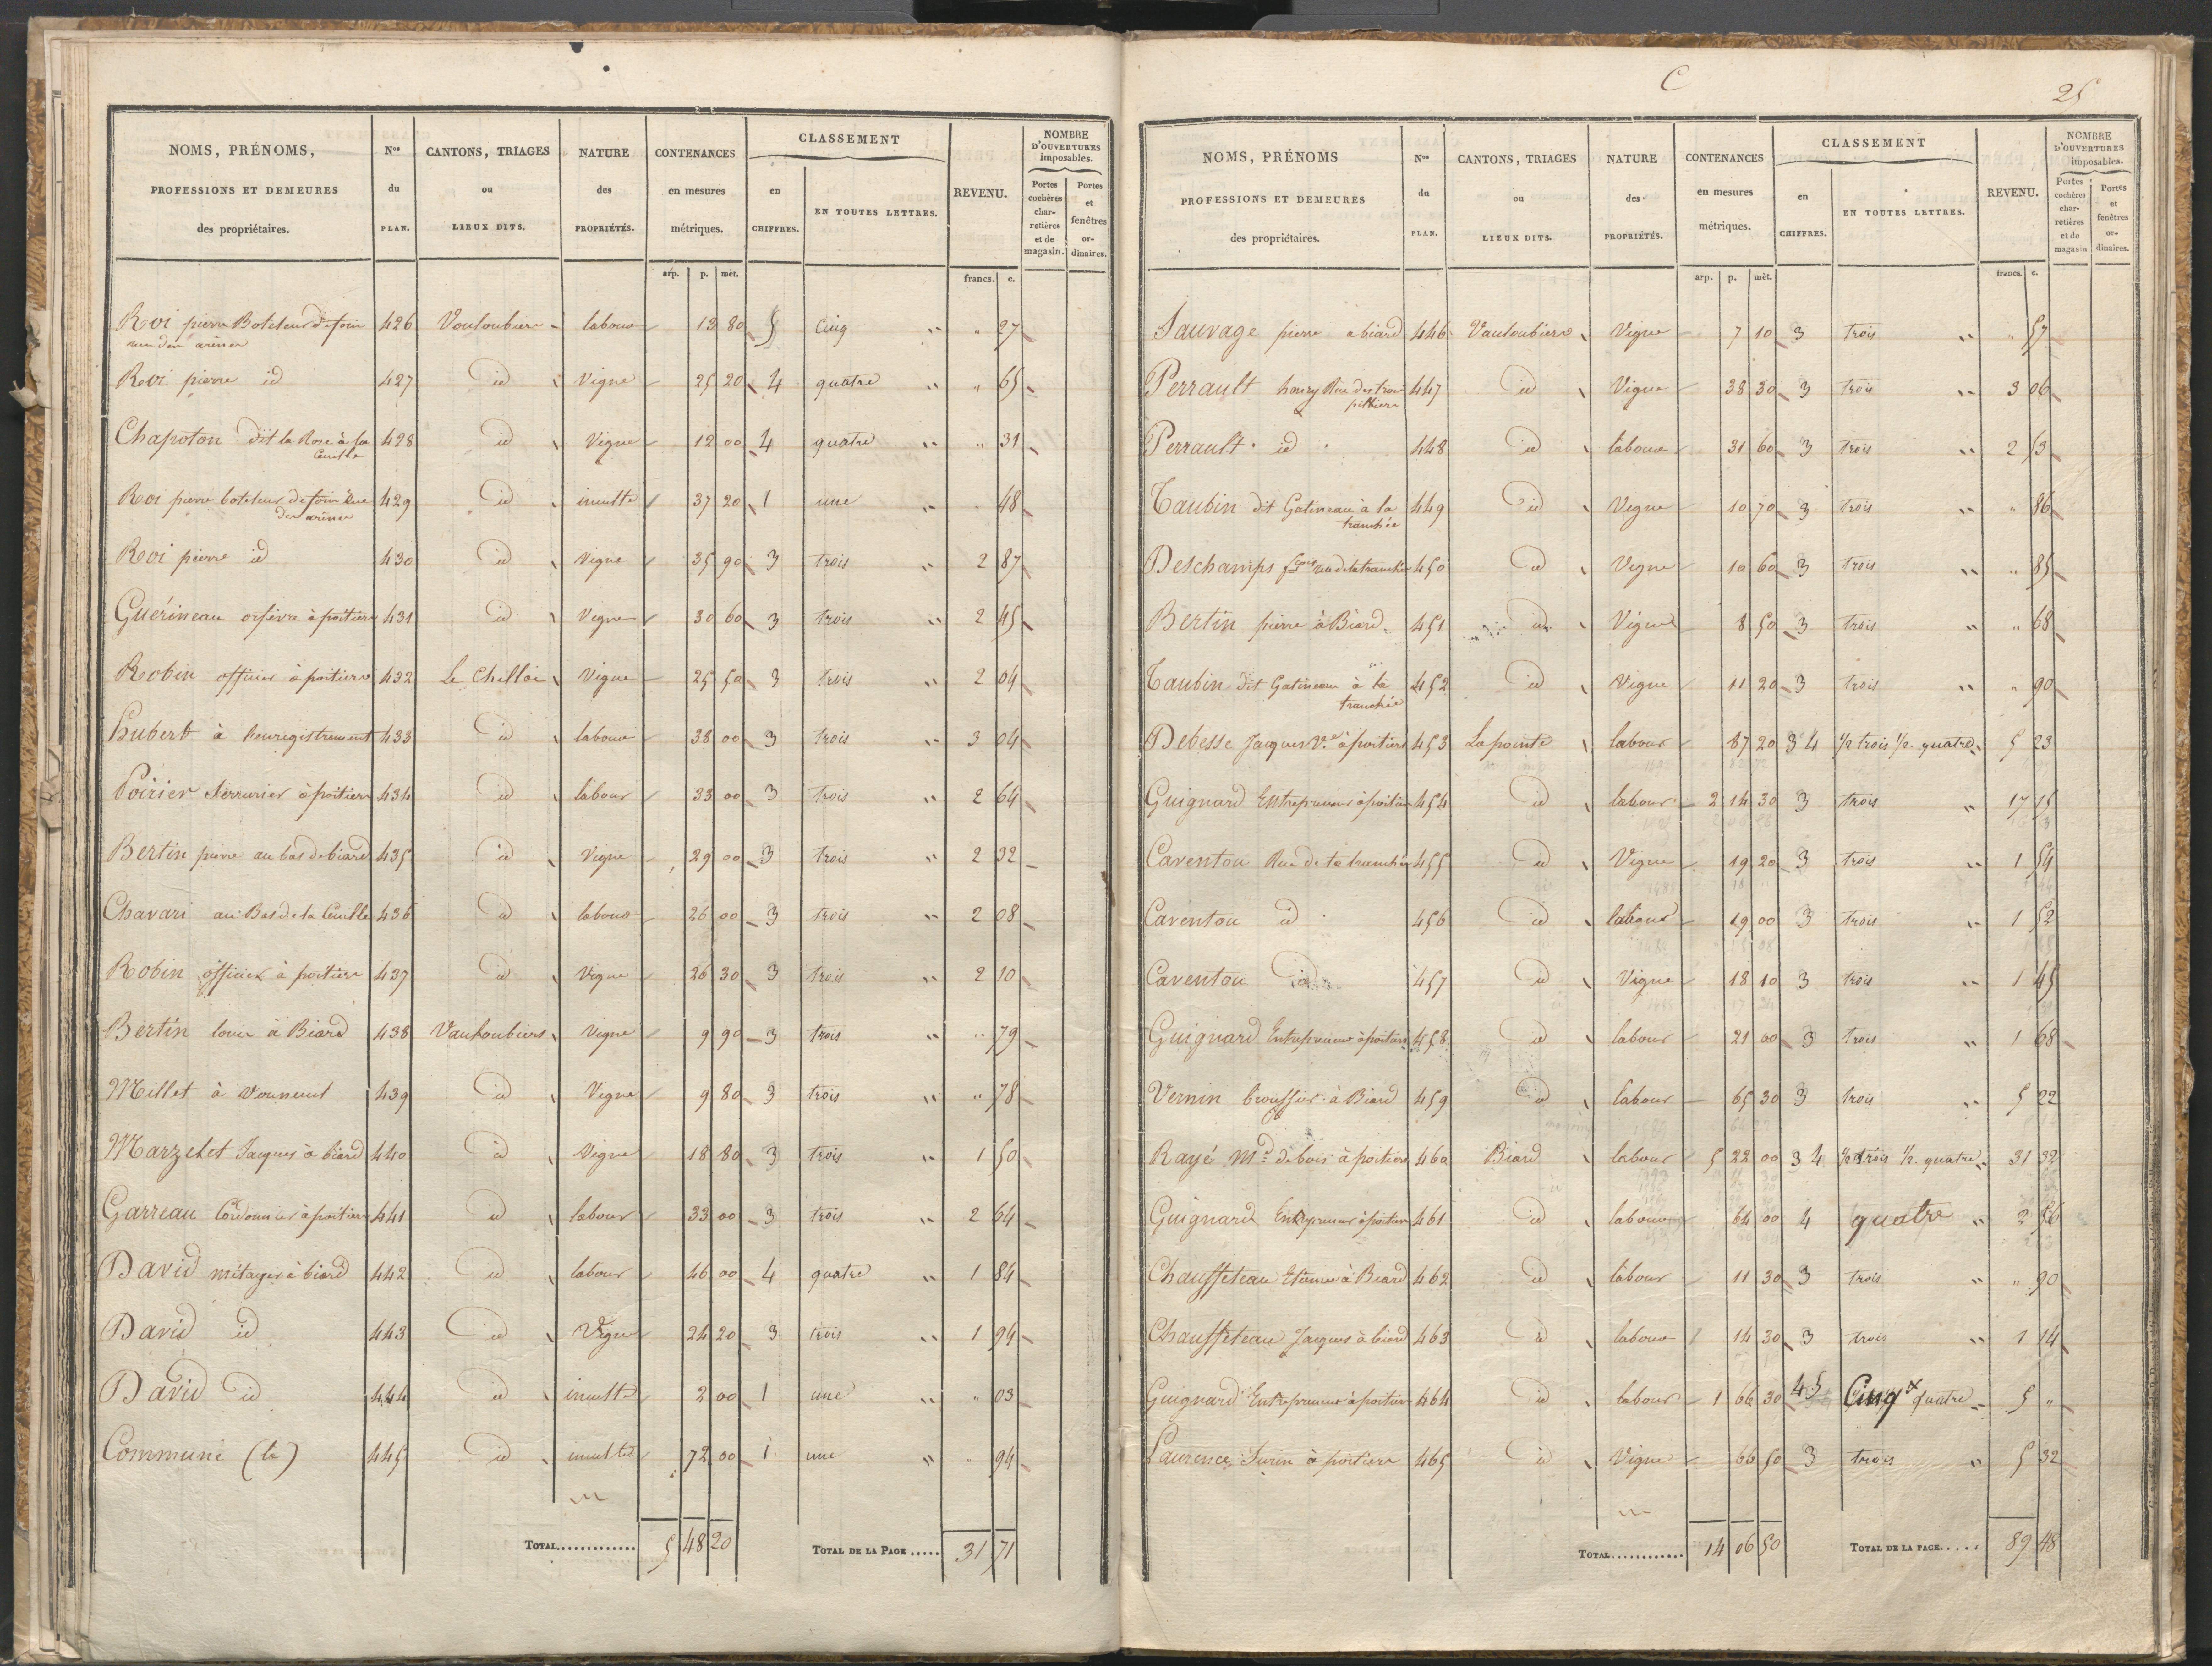 NOMS, PRÉNOMS, PROFESSIONS ET DEMEURES des propriétaires. | Nos du PLAN. | CANTONS, TRIAGES ou LIEUX DITS. | NATURE des PROPRIÉTÉS. | CONTENANCES en mesures métriques. | CLASSEMENT en CHIFFRES. | EN TOUTES LETTRES. | REVENU. | NOMBRE D'OUVERTURES imposables. Portes cochères charretières et de magasin. | Portes et fenêtres ordinaires.
arp. p. mèt. francs. c.
Roi pierre Boteleur de foin rue des arènes 426 Vautoubiers labour 13 80 5 Cinq " " 27
Roi pierre id 427 id Vigne 25 20 4 quatre " " 65
Chapoton dit la Rose à la Cueille 428 id Vigne 12 00 4 quatre " " 31
Roi pierre boteleur de foin Rue des arènes 429 id inculte 37 20 1 une " " 48
Roi pierre id 430 id vigne 35 90 3 trois " 2 87
Guérineau orfèvre à poitiers 431 id Vigne 30 60 3 trois " 2 45
Robin officier à poitiers 432 le Chilloi Vigne 25 50 3 trois " 2 04
Hubert à l'enregistrement 433 id labour 38 00 3 trois " 3 04
Poirier Serrurier à poitiers 434 id labour 33 00 3 trois " 2 64
Bertin pierre au bas de biard 435 id Vigne 29 00 3 trois " 2 32
Chavari au Bas de la Cueille 436 id labour 26 00 3 trois " 2 08
Robin officier à poitiers 437 id Vigne 26 30 3 trois " 2 10
Bertin à Biard 438 Vautoubiers Vigne 9 90 3 trois " " 79
Millet à Vouneuil 439 id Vigne 9 80 3 trois " " 78
Marzelet Jacques à biard 440 id Vigne 18 80 3 trois " 1 50
Garreau Cordonnier à poitiers 441 id labour 33 00 3 trois " 2 64
David métayer à biard 442 id labour 46 00 4 quatre " 1 84
David id 443 id Vigne 24 20 3 trois " 1 94
David id 444 id inculte 2 00 1 une " " 03
Commune (la) 445 id inculte 72 00 1 une " " 94
TOTAL............. 5 48 20 TOTAL DE LA PAGE ..... 31 71
C
25
NOMS, PRÉNOMS PROFESSIONS ET DEMEURES des propriétaires. | Nos du PLAN. | CANTONS, TRIAGES ou LIEUX DITS. | NATURE des PROPRIÉTÉS. | CONTENANCES en mesures métriques. | CLASSEMENT en CHIFFRES. | EN TOUTES LETTRES. | REVENU. | NOMBRE D'OUVERTURES imposables. Portes cochères charretières et de magasin | Portes et fenêtres ordinaires.
arp. p. mèt. francs. c.
Sauvage pierre a biard 446 Vautoubiers Vigne 7 10 3 trois " " 57
Perrault henry Rue des trois pilliers 447 id Vigne 38 30 3 trois " 3 06
Perrault id 448 id labour 31 60 3 trois " 2 53
Taubin dit Gatineau à la tranchée 449 id Vigne 10 70 3 trois " " 86
Deschamps fcois rue de la tranchée 450 id Vigne 10 60 3 trois " " 85
Bertin pierre à Biard 451 id Vigne 8 50 3 trois " " 68
Taubin dit Gatineau à la tranchée 452 id Vigne 11 20 3 trois " " 90
Debesse Jacques Ve à poitiers 453 La pointe labour 87 20 3 4 1/2 trois 1/2 quatre 5 23
Guignard Entrepreneur à poitiers 454 id labour 2 14 30 3 trois " 17 15
Caventou Rue de la tranchée 455 id Vigne 19 20 3 trois " 1 54
Caventou id 456 id labour 19 00 3 trois " 1 52
Caventou id 457 id Vigne 18 10 3 trois " 1 45
Guignard Entrepreneur à poitiers 458 id labour 21 00 3 trois " 1 68
Vernin à Biard 459 id labour 65 30 3 trois " 5 22
Rayé Md de bois à poitiers 460 Biard labour 5 22 00 3 4 1/2 trois 1/2 quatre 31 32
Guignard Entrepreneur à poitiers 461 id labour 64 00 4 quatre " 2 56
Chauffeteau Etienne à Biard 462 id labour 11 30 3 trois " " 90
Chauffeteau Jacques à biard 463 id labour 14 30 3 trois " 1 14
Guignard Entrepreneur à poitiers 464 id labour 1 66 30 4 5 Cinq & quatre 5 "
Laurence à poitiers 465 id Vigne 66 50 3 trois " 5 32
TOTAL............ 14 06 50 TOTAL DE LA PAGE..... 89 48